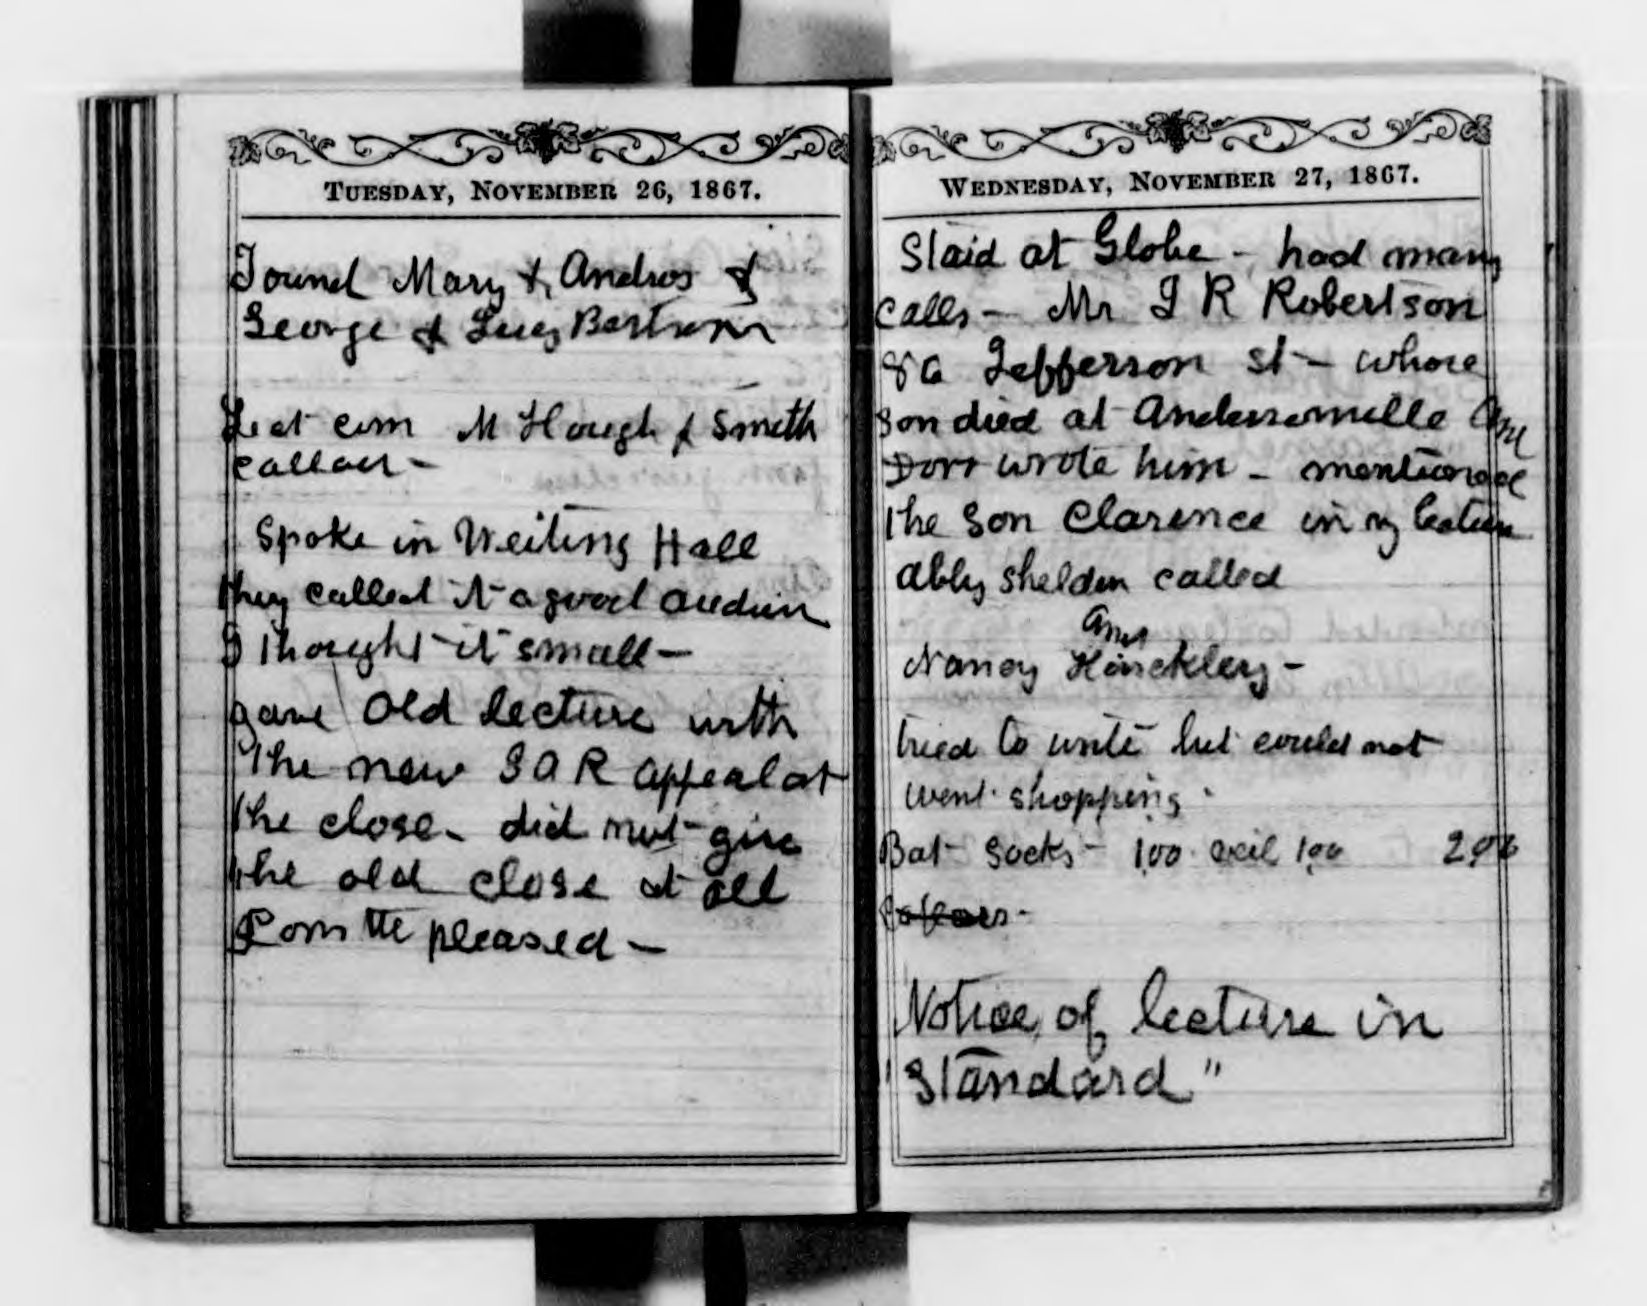 TUESDAY, NOVEMBER 26, 1867.
Found Mary & Andros &
George & Lucy Bartram
Lect com M Hough & Smith
called -
Spoke in Weiting Hall
they called it a good audien
I thought it small -
gave old lecture with
the new G A R appeal at
the close - did not give
the old close at all
Com tte pleased -
WEDNESDAY, NOVEMBER 27, 1867.
Staid at Globe - had many
calls - Mr J R Robertson
86 Jefferson st - whose
son died at Andersonville
Dorr wrote him - mentioned
the son Clarence in my lecture
Abby Sheldon called
Nancy Hinckley -
tried to write but could not
went shopping -
Bat socks - 1,00 veil 1,00 2,00
Collars -
Notice of lecture in
"Standard"